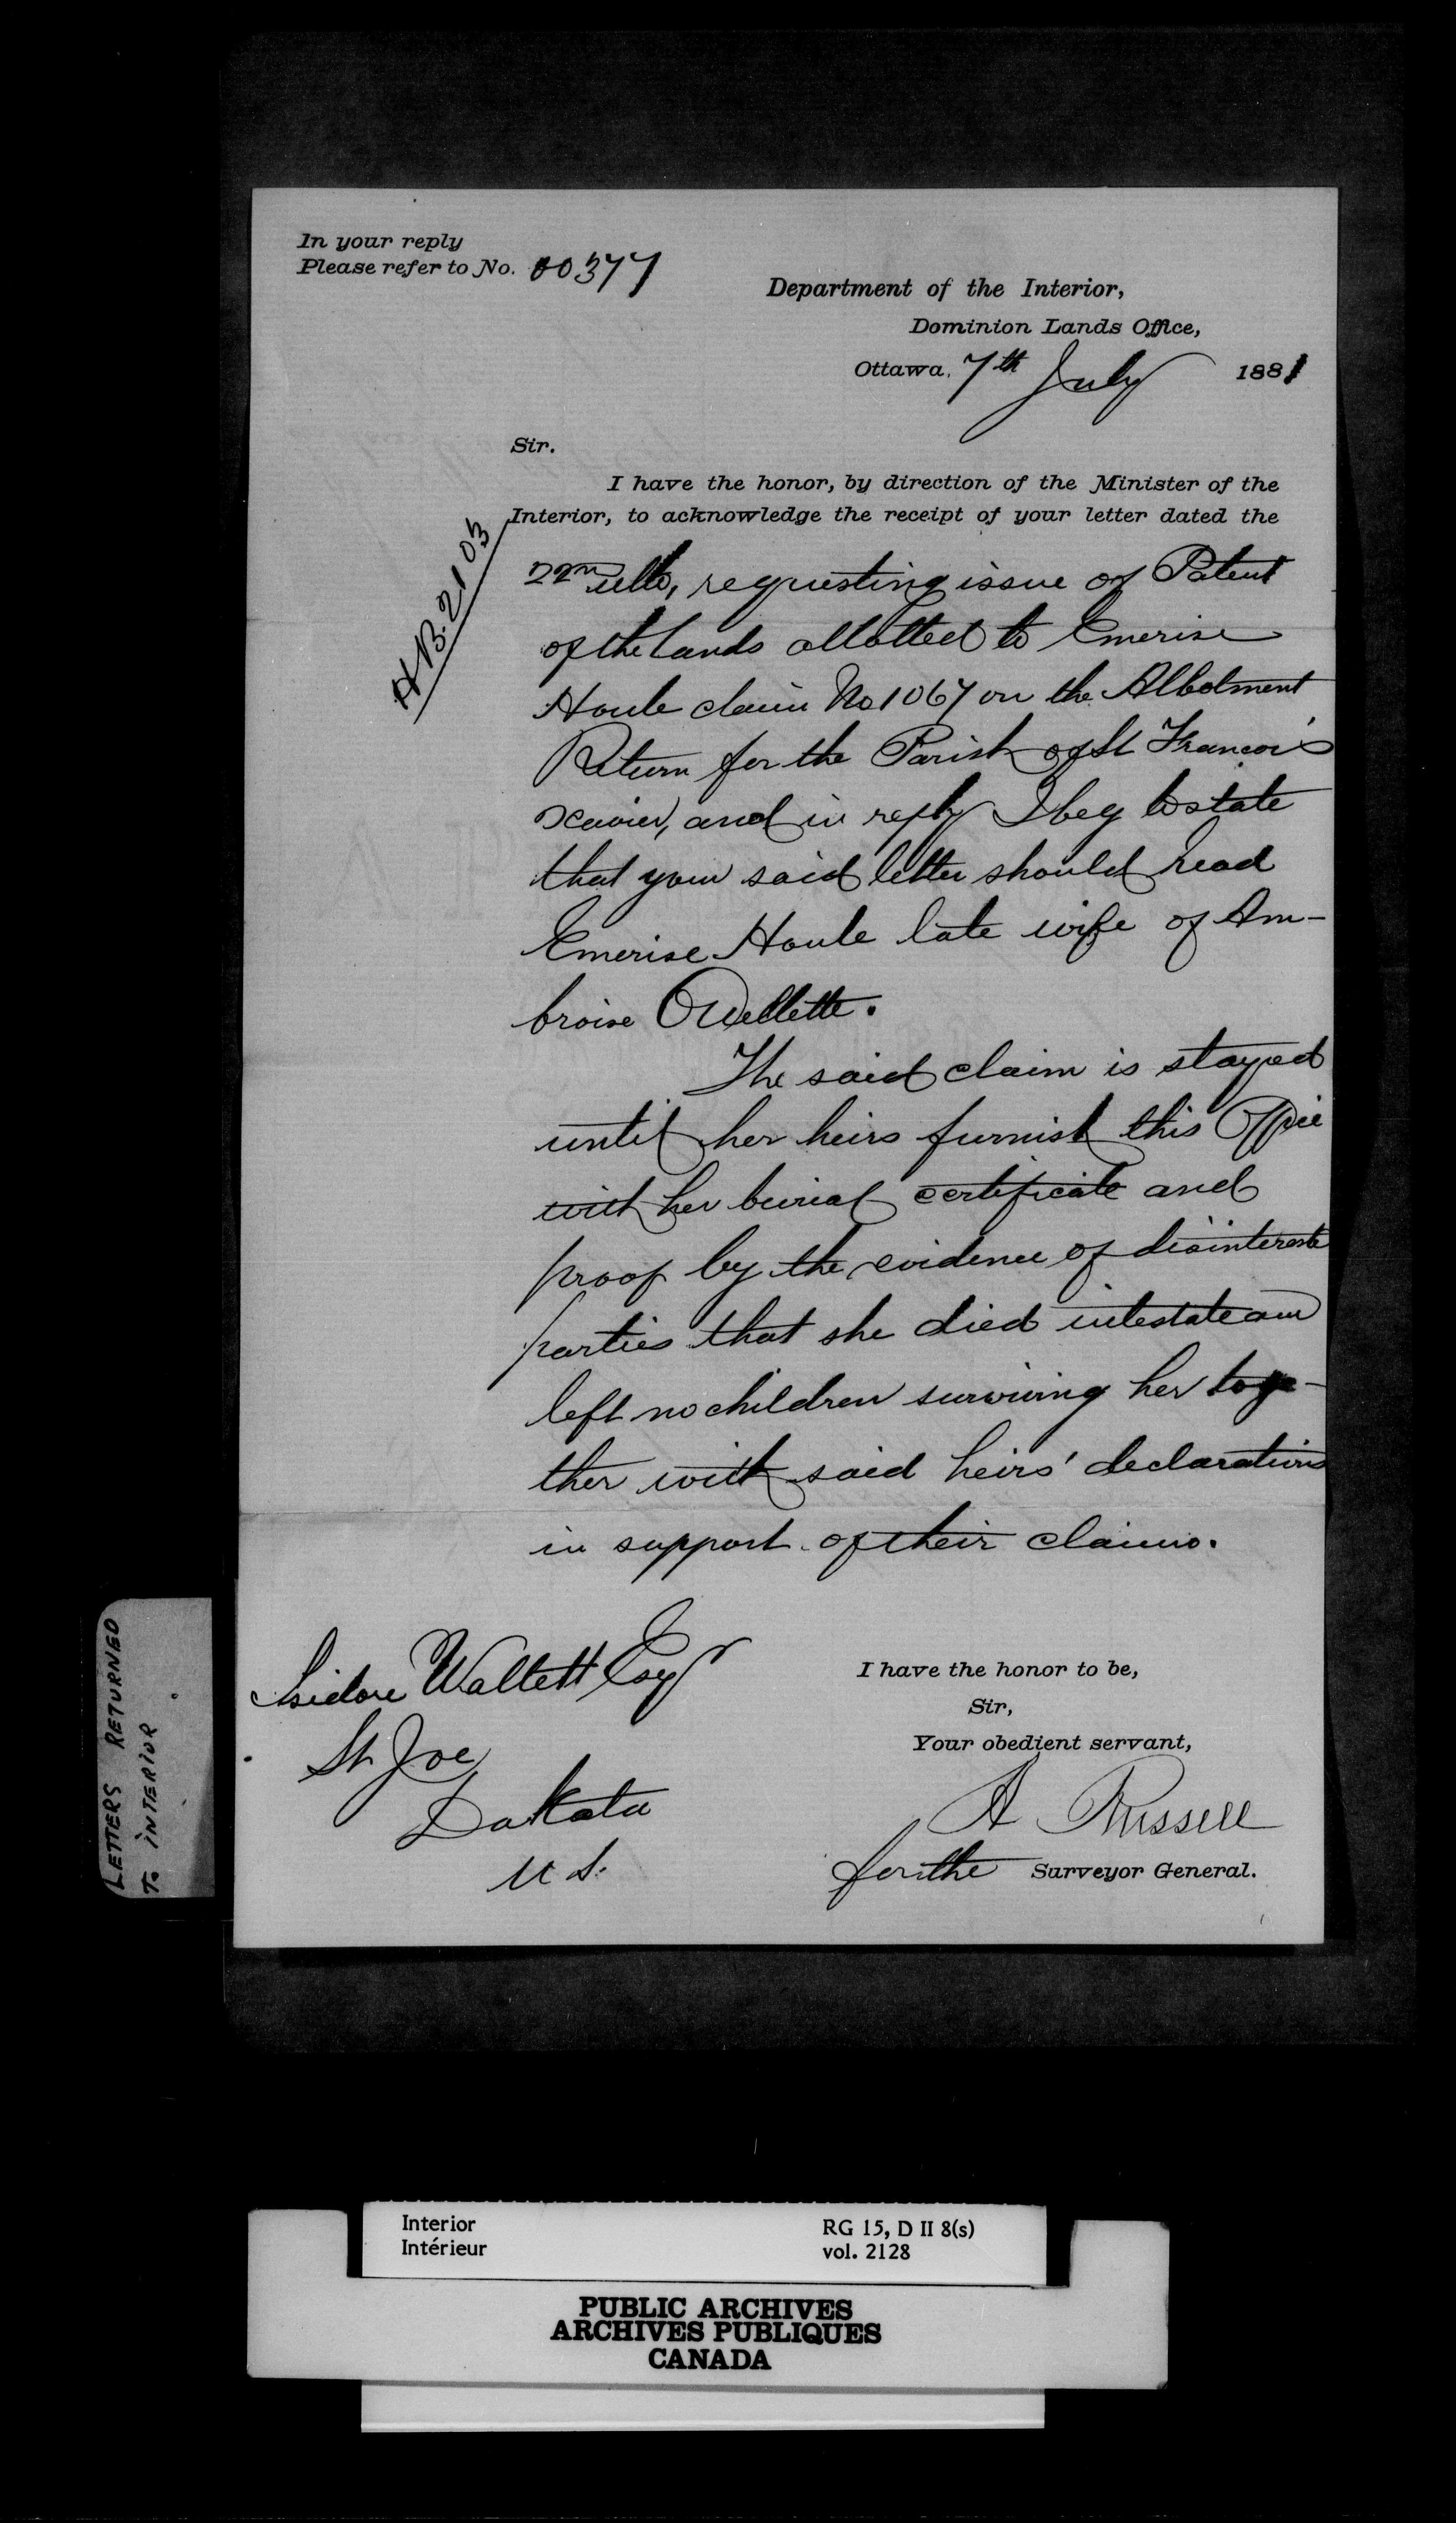 In your reply
Please refer to No. 00377
Department of the Interior,
Dominion Lands Office,
Ottawa, 7th July 1881
Sir.
I have the honor, by direction of the Minister of the
Interior, to acknowledge the receipt of your letter dated the
HB. 2103
22nd ulto, requesting issue of Patent
of the lands allotted to Emerise
Houle claim No 1067 on the Allotment
Return for the Parish of St Francois
Xavier, and in reply I beg to state
that your said letter should read
Emerise Houle late wife of Am-
broise Ouellette.
The said claim is stayed
until her heirs furnish this Office
with her burial certificate and
proof by the evidence of disintereste
parties that she died intestate and
left no children surviving her toge-
ther with said heirs' declarations
in support of their claims.
Isidore Wallett Esqr
St Joe
Dakota
U S.
I have the honor to be,
Sir,
Your obedient servant,
A Russell
for the Surveyor General.
LETTERS RETURNED
TO INTERIOR
Interior
Intérieur
RG 15, D II 8(s)
vol. 2128
PUBLIC ARCHIVES
ARCHIVES PUBLIQUES
CANADA